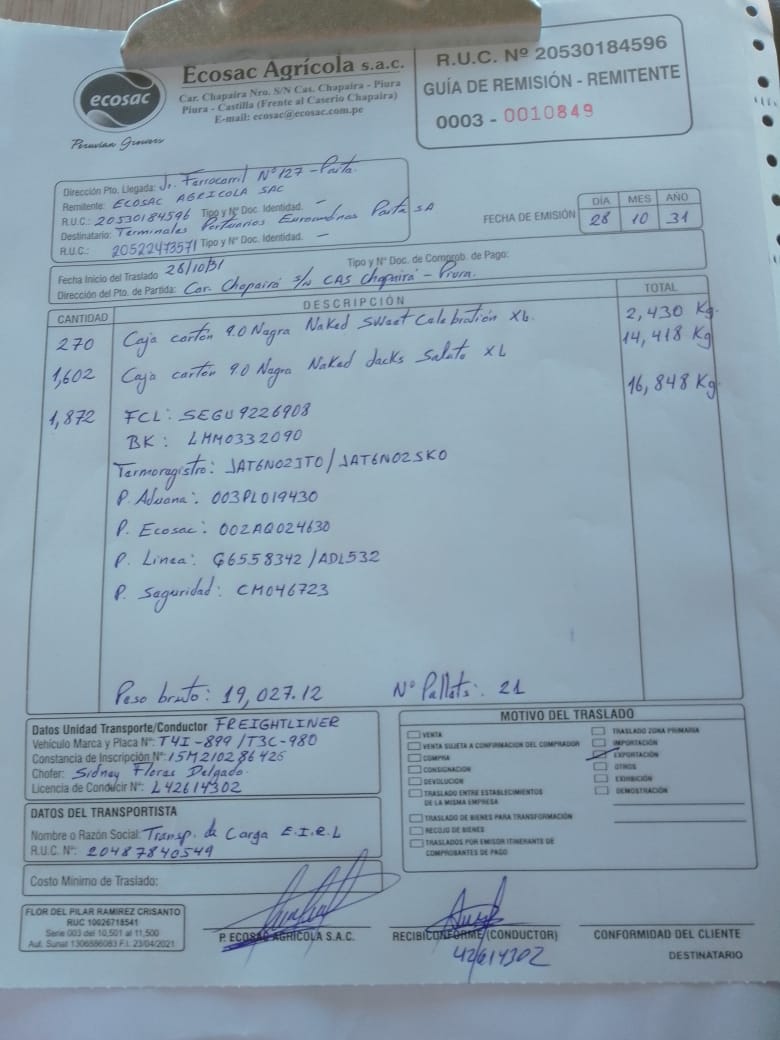 ecosac
Peruvian Growers
Ecosac Agrícola s.a.c.
Car. Chapaira Nro. S/N Cas. Chapaira - Piura
Piura - Castilla (Frente al Caserio Chapaira)
E-mail: ecosac@ecosac.com.pe
R.U.C. Nº 20530184596
GUÍA DE REMISIÓN - REMITENTE
0003 - 0010849
Dirección Pto. Llegada: Jr. Ferrocarril Nº 127 - Paita.
Remitente: ECOSAC AGRICOLA SAC
R.U.C.: 20530184596 Tipo y Nº Doc. Identidad. -
Destinatario: Terminales Portuarios Euroandinos Paita SA
R.U.C.: 20522473571 Tipo y Nº Doc. Identidad. -
FECHA DE EMISIÓN
DÍA MES AÑO
28 10 31
Fecha Inicio del Traslado 28/10/31 Tipo y Nº Doc. de Comprob. de Pago:
Dirección del Pto. de Partida: Car. Chapairá S/N CAS Chapairá - Piura.
CANTIDAD DESCRIPCIÓN TOTAL
270 Caja cartón 9.0 Negra Naked Sweet Celebration XL. 2,430 Kg.
1,602 Caja cartón 9.0 Negra Naked Jacks Salute XL 14,418 Kg
1,872 16,848 Kg.
FCL: SEGU9226908
BK: LMM0332090
Termoregistro: JAT6N02JTO / JAT6N02SKO
P. Aduana: 003PL019430
P. Ecosac: 002AQ024630
P. Linea: G6558342 / ADL532
P. Seguridad: CM046723
Peso bruto: 19,027.12 Nº Pallets: 21
Datos Unidad Transporte/Conductor FREIGHTLINER
Vehículo Marca y Placa Nº: T4I-899 / T3C-980
Constancia de Inscripción Nº: 15M21028642S
Chofer: Sidney Flores Delgado.
Licencia de Conducir Nº: L42614302
DATOS DEL TRANSPORTISTA
Nombre o Razón Social: Transp. de Carga E.I.R.L
R.U.C. Nº: 20487840549
Costo Mínimo de Traslado:
MOTIVO DEL TRASLADO
VENTA
VENTA SUJETA A CONFIRMACION DEL COMPRADOR
COMPRA
CONSIGNACION
DEVOLUCION
TRASLADO ENTRE ESTABLECIMIENTOS
DE LA MISMA EMPRESA
TRASLADO DE BIENES PARA TRANSFORMACIÓN
RECOJO DE BIENES
TRASLADOS POR EMISOR ITINERANTE DE
COMPROBANTES DE PAGO
TRASLADO ZONA PRIMARIA
IMPORTACIÓN
EXPORTACIÓN
OTROS
EXHIBICIÓN
DEMOSTRACIÓN
FLOR DEL PILAR RAMIREZ CRISANTO
RUC 10026718541
Serie 003 del 10,501 al 11,500
Aut. Sunat 1306886083 F.I. 23/04/2021
P. ECOSAC AGRÍCOLA S.A.C.
RECIBI CONFORME (CONDUCTOR)
42614302
CONFORMIDAD DEL CLIENTE
DESTINATARIO